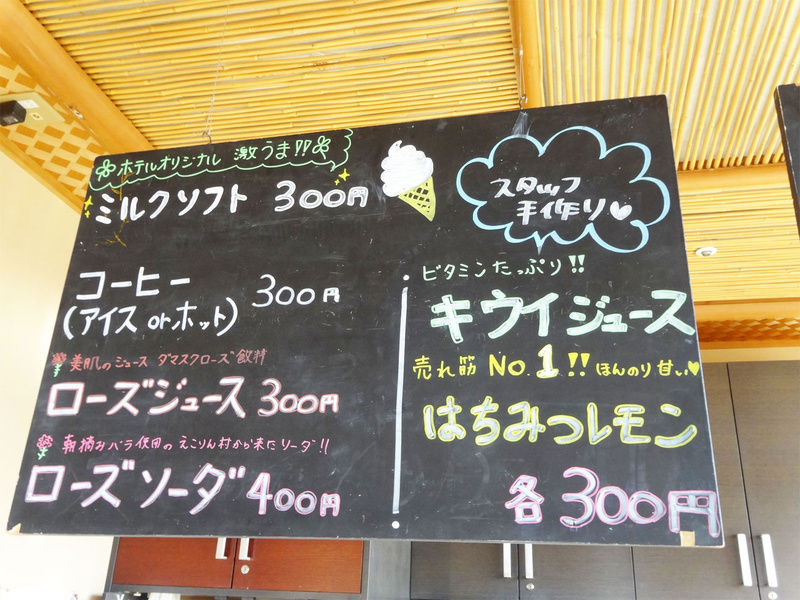 ホテルオリジナル 激うま!!
ミルクソフト 300円
コーヒー
(アイス or ホット) 300円
美肌のジュース ダマスクローズ飲料
ローズジュース 300円
朝摘みバラ使用の えこりん村から来たソーダ!!
ローズソーダ 400円
スタッフ
手作り♥
ビタミンたっぷり!!
キウイジュース
売れ筋 No.1!! ほんのり甘い♥
はちみつレモン
各300円